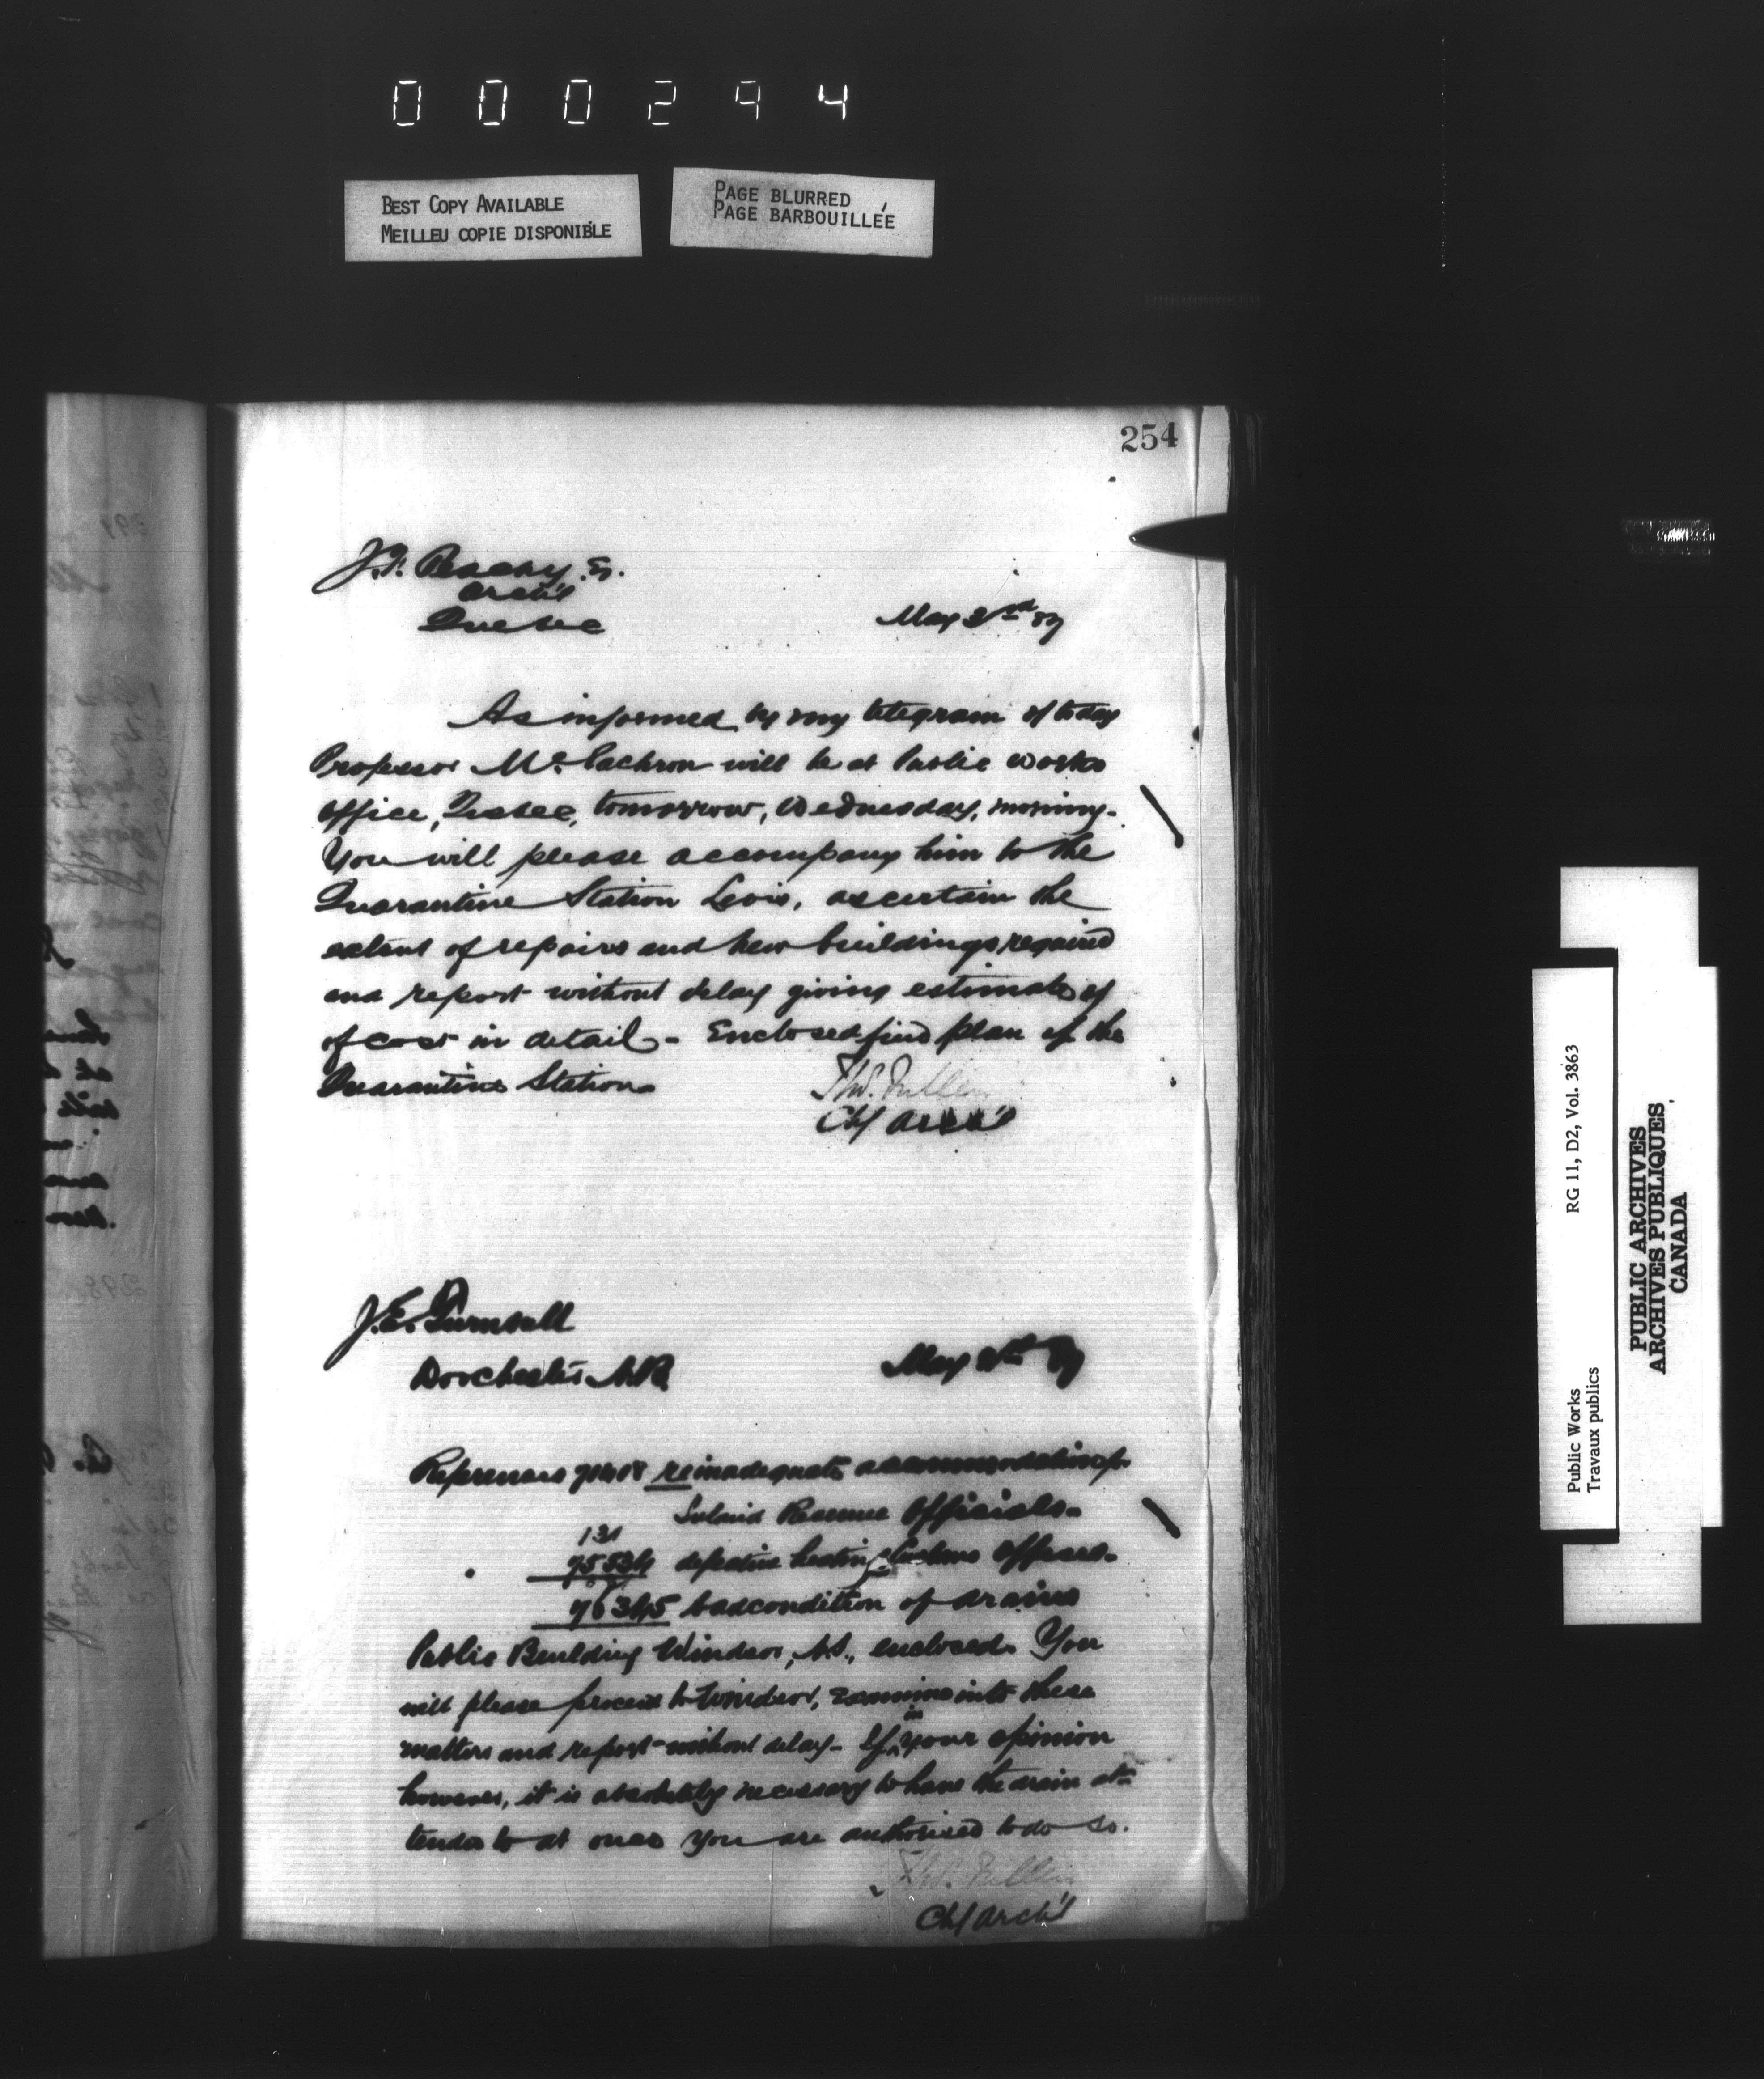 000294
BEST COPY AVAILABLE
MEILLEU COPIE DISPONIBLE
PAGE BLURRED
PAGE BARBOUILLÉE
254
J.F. Peachy, E.
Archt
Quebec
May 3rd 87
As informed by my telegram of today
Professor Mc.Eachron will be at Public works
office, Quebec, tomorrow, Wednesday, morning.
You will please accompany him to the
Quarantine Station Levis, ascertain the
extent of repairs and new buildings required
and report without delay giving estimate of
of cost in detail - Enclosed find plan of the
Quarantine Station
Thos. Fuller
Chf Archt
J.E.
Dorchester N.B.
May 87
References re inadequate accommodation for
Inland Revenue Officials.
131
75534 defective heating Customs offices.
76345 bad condition of drains
Public Building Windsor, N.S., enclosed. You
will please proceed to Windsor, examine into these
matters and report without delay - If in your opinion
however, it is absolutely necessary to have the drain at-
tended to at once you are authorised to do so.
Thos. Fuller
Chf Archt
Public Works
Travaux publics
RG 11, D2, Vol. 3863
PUBLIC ARCHIVES
ARCHIVES PUBLIQUES
CANADA